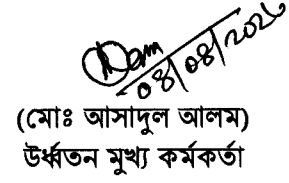 ০৪/০৪/২০২৬
(মোঃ আসাদুল আলম)
উর্ধ্বতন মুখ্য কর্মকর্তা